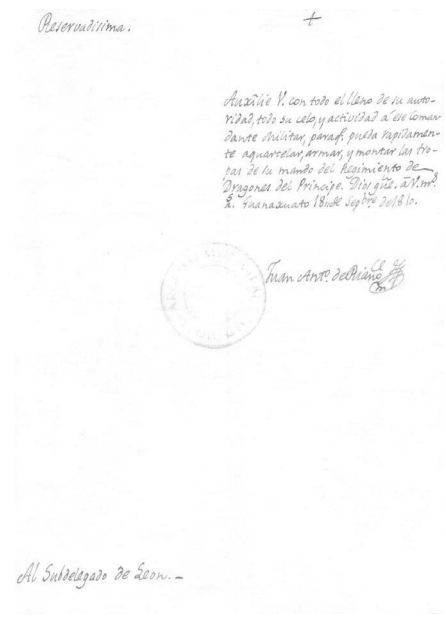 Reservadisima.
+
Auxîlie V. con todo el lleno de su auto-
ridad, todo su celo, y actividad á ese Coman
dante Militar, paraq.e pueda rapidamen-
te aquartelar, armar, y montar las tro-
pas de su mando del Regimiento de
Dragones del Principe. Dios gūe. á V. m.s
a.s Guanaxuato 18 de Sepbre. de 1810.
Juan Anto. de Riaño
Al Subdelegado de Leon. -